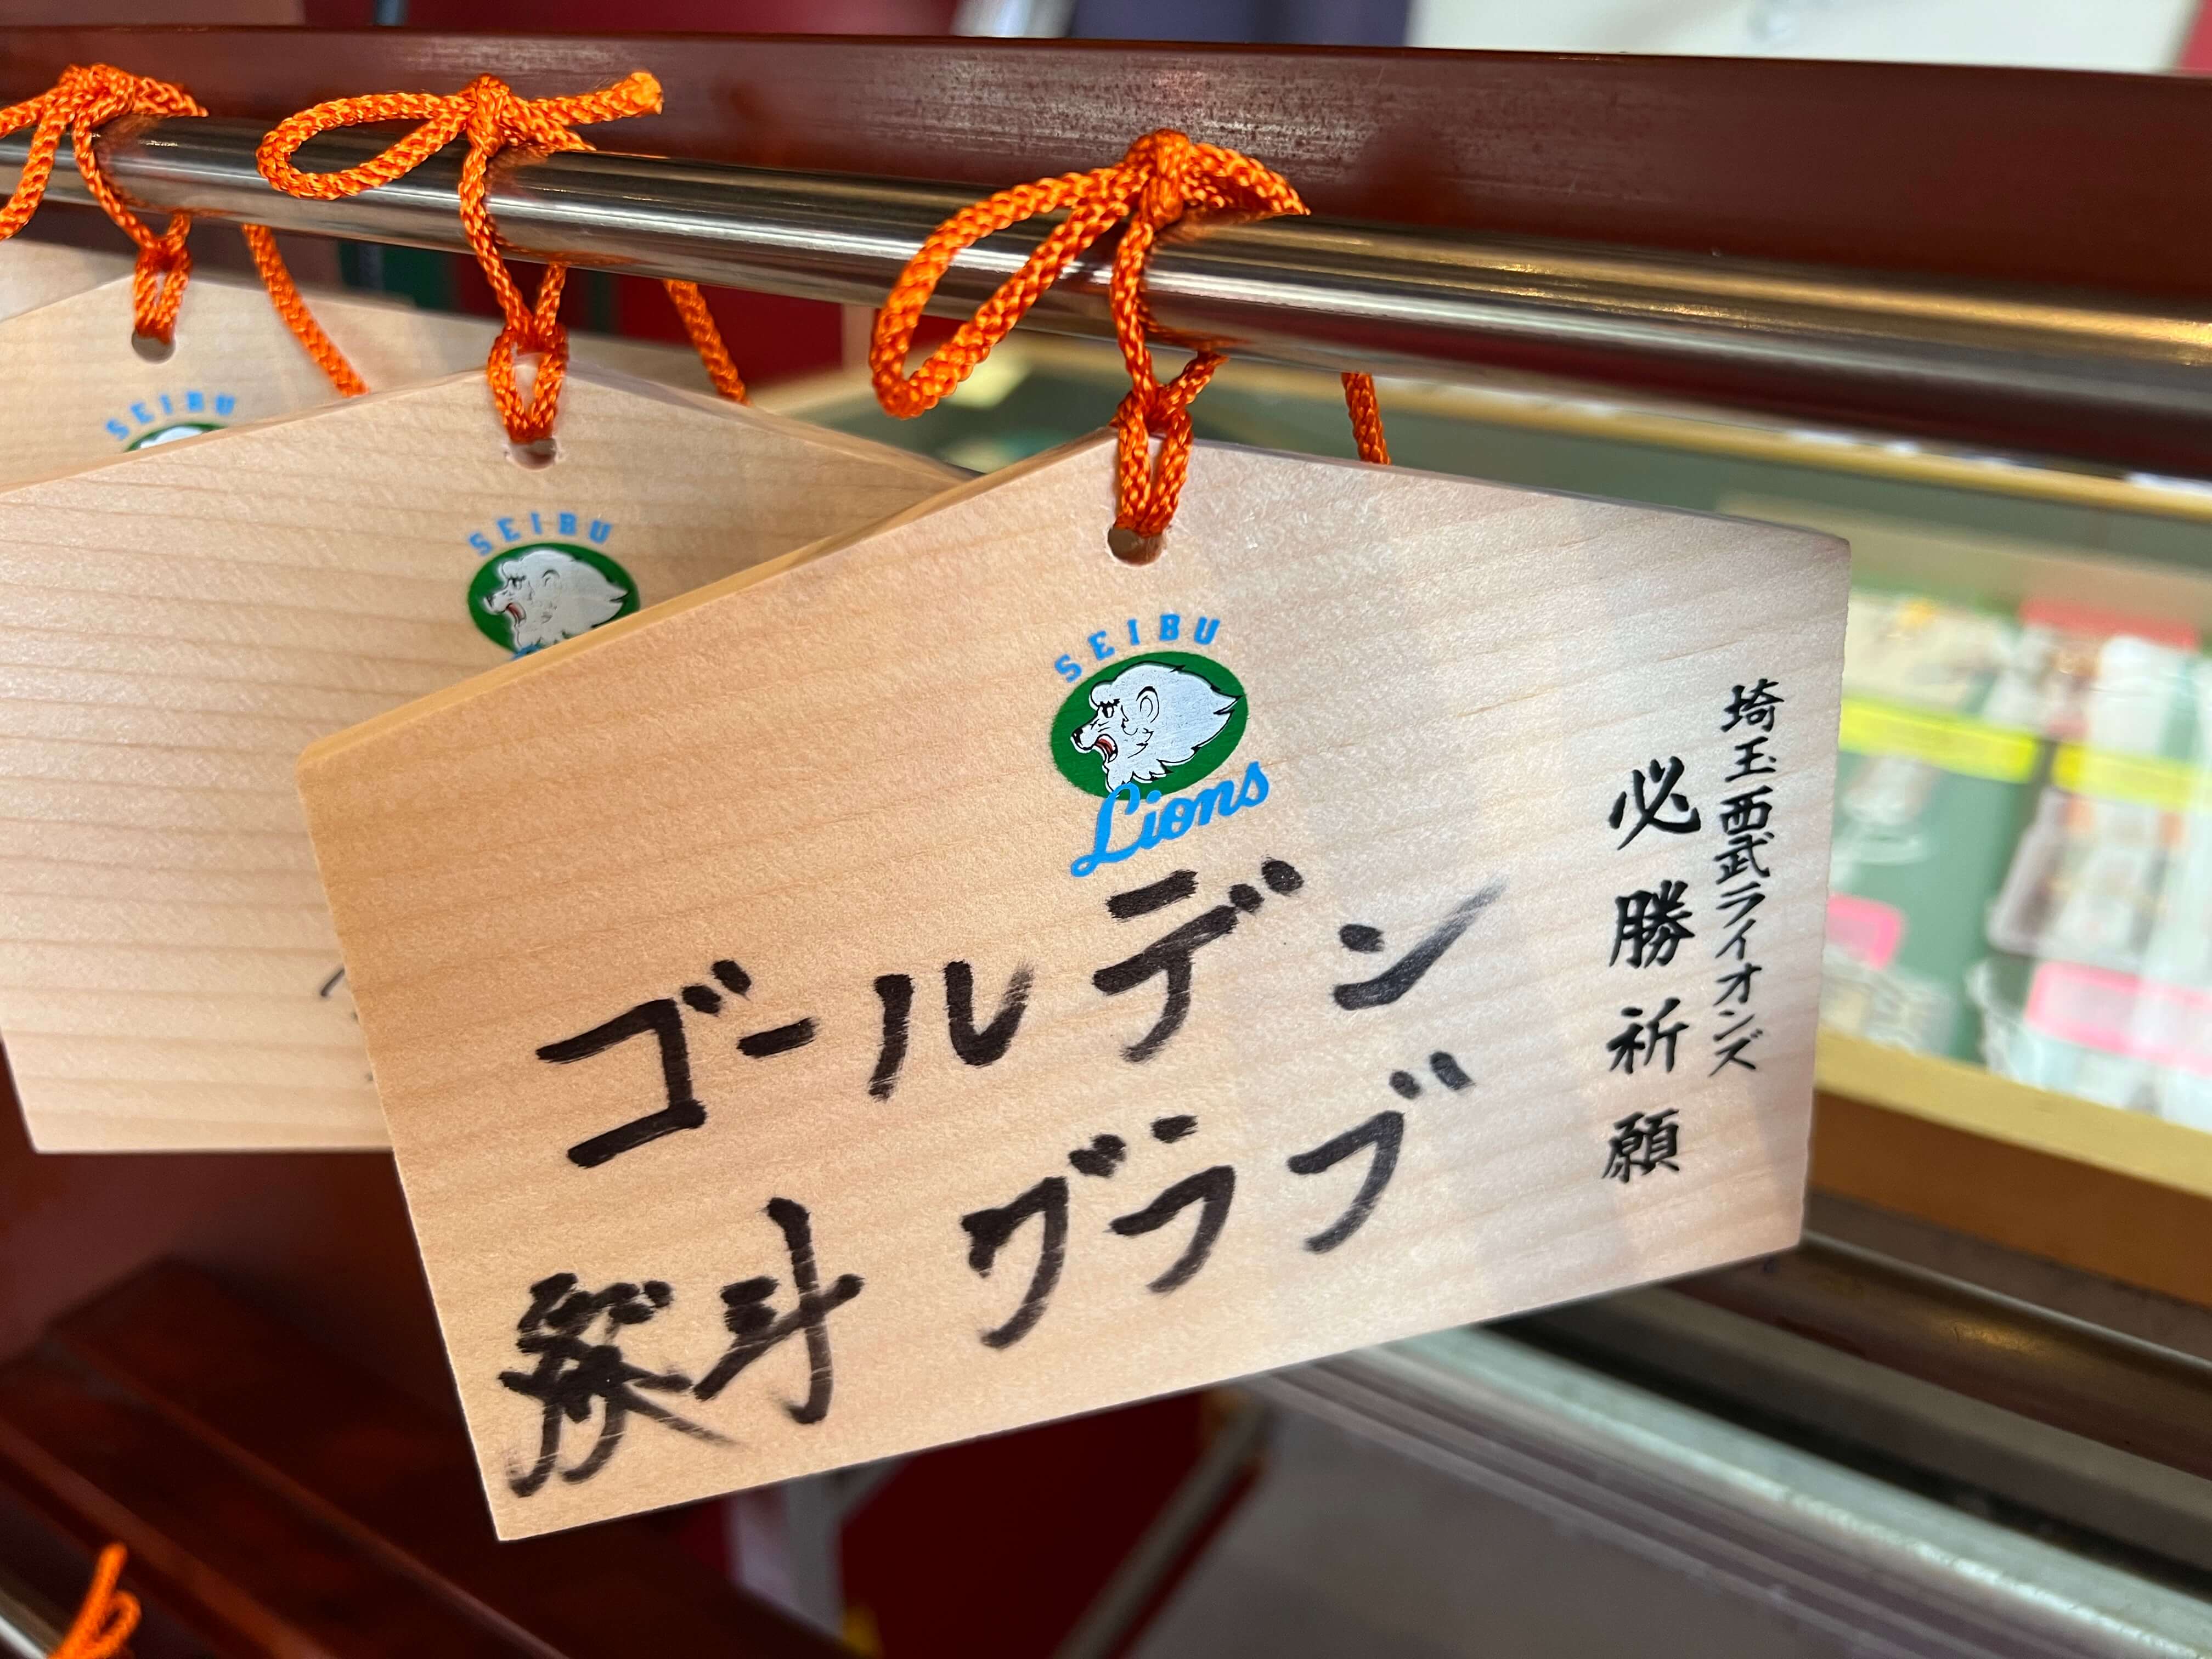 SEIBU
SEIBU
SEIBU
Lions
埼玉西武ライオンズ
必勝祈願
ゴールデン
グラブ